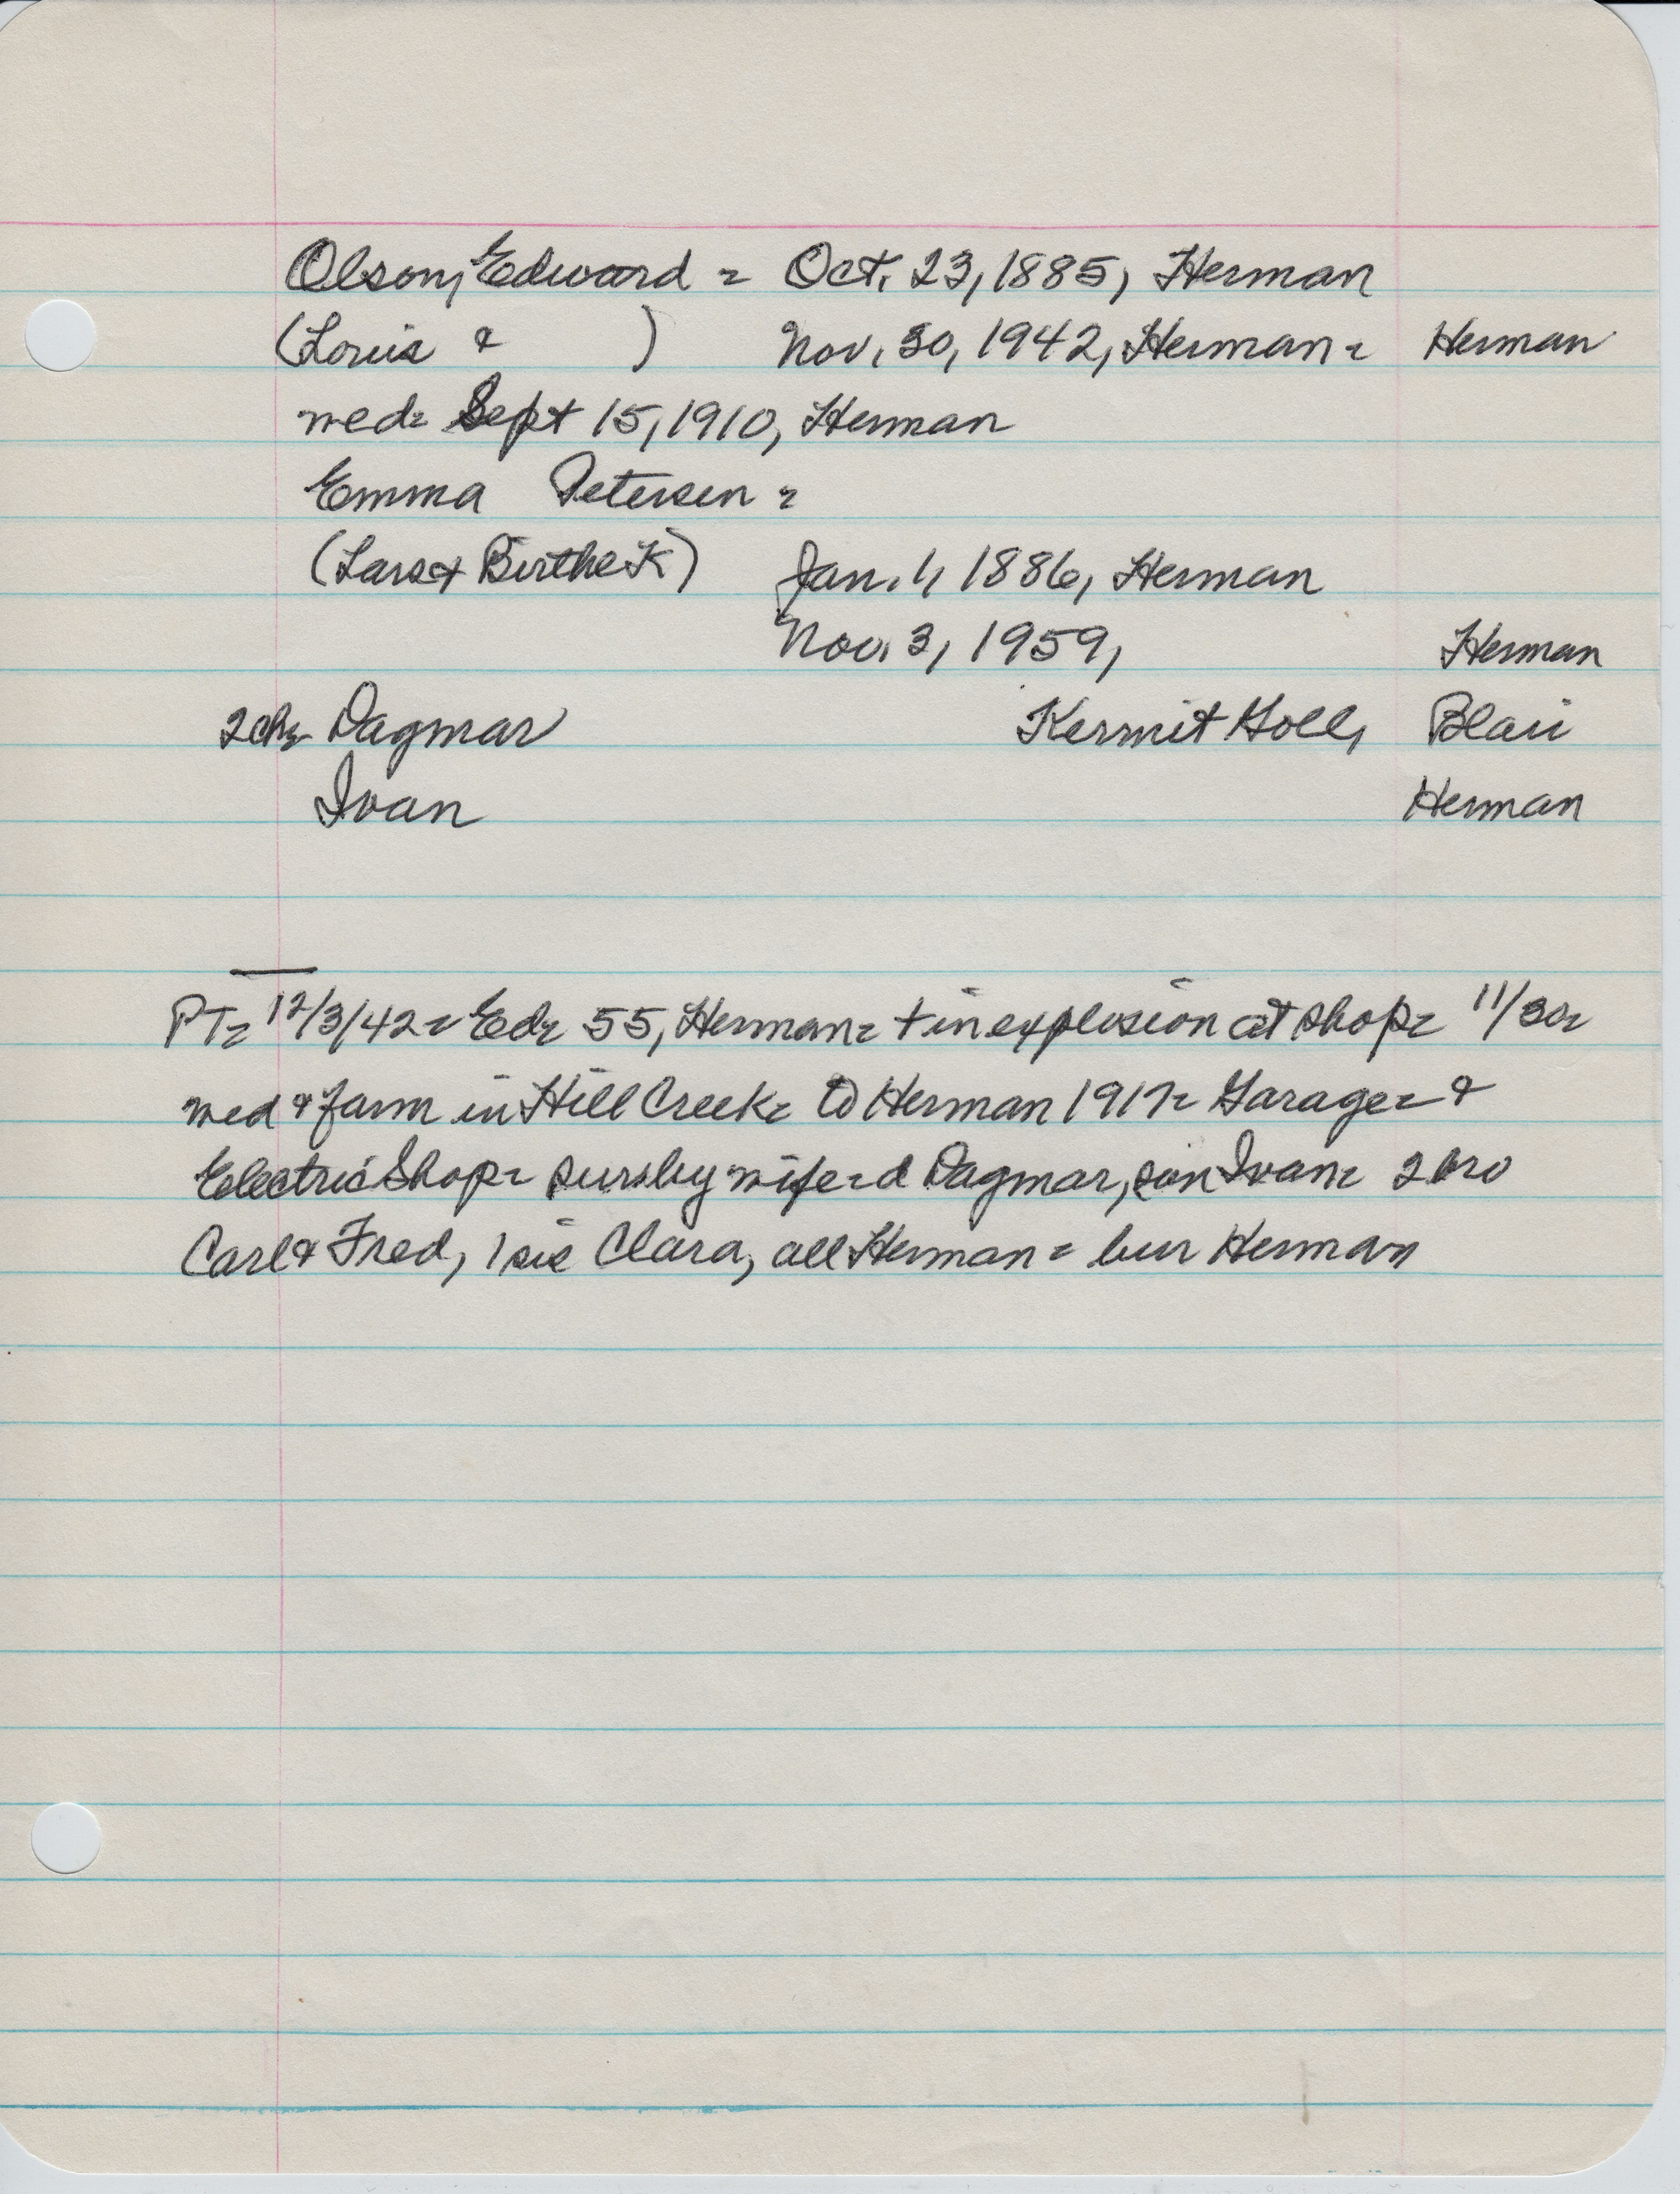 Olson, Edward = Oct. 23, 1885, Herman
(Louis & ) Nov. 30, 1942, Herman = Herman
wed = Sept 15, 1910, Herman
Emma Petersen =
(Lars & Birthe K) Jan. 1, 1886, Herman
Nov. 3, 1959, Herman
2 ch = Dagmar Kermit Goll, Blair
Ivan Herman
PT = 12/3/42 = Ed = 55, Herman = + in explosion at shop = 11/30 =
wed & farm in Hill Creek = to Herman 1917 = Garage = &
Electric Shop = surs by wife = d Dagmar, son Ivan = 2 bro
Carl & Fred, 1 sis Clara, all Herman = bur Herman